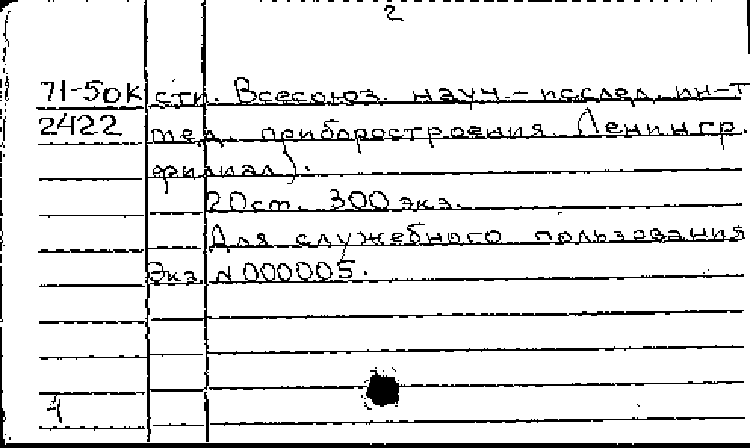 2
71-50к сти. Всесоюз. науч.-исслед. ин-т
2422 мед. приборостроения. Ленингр.
филиал).
20см. 300 экз.
Для служебного пользования
Экз. N 000005.
1